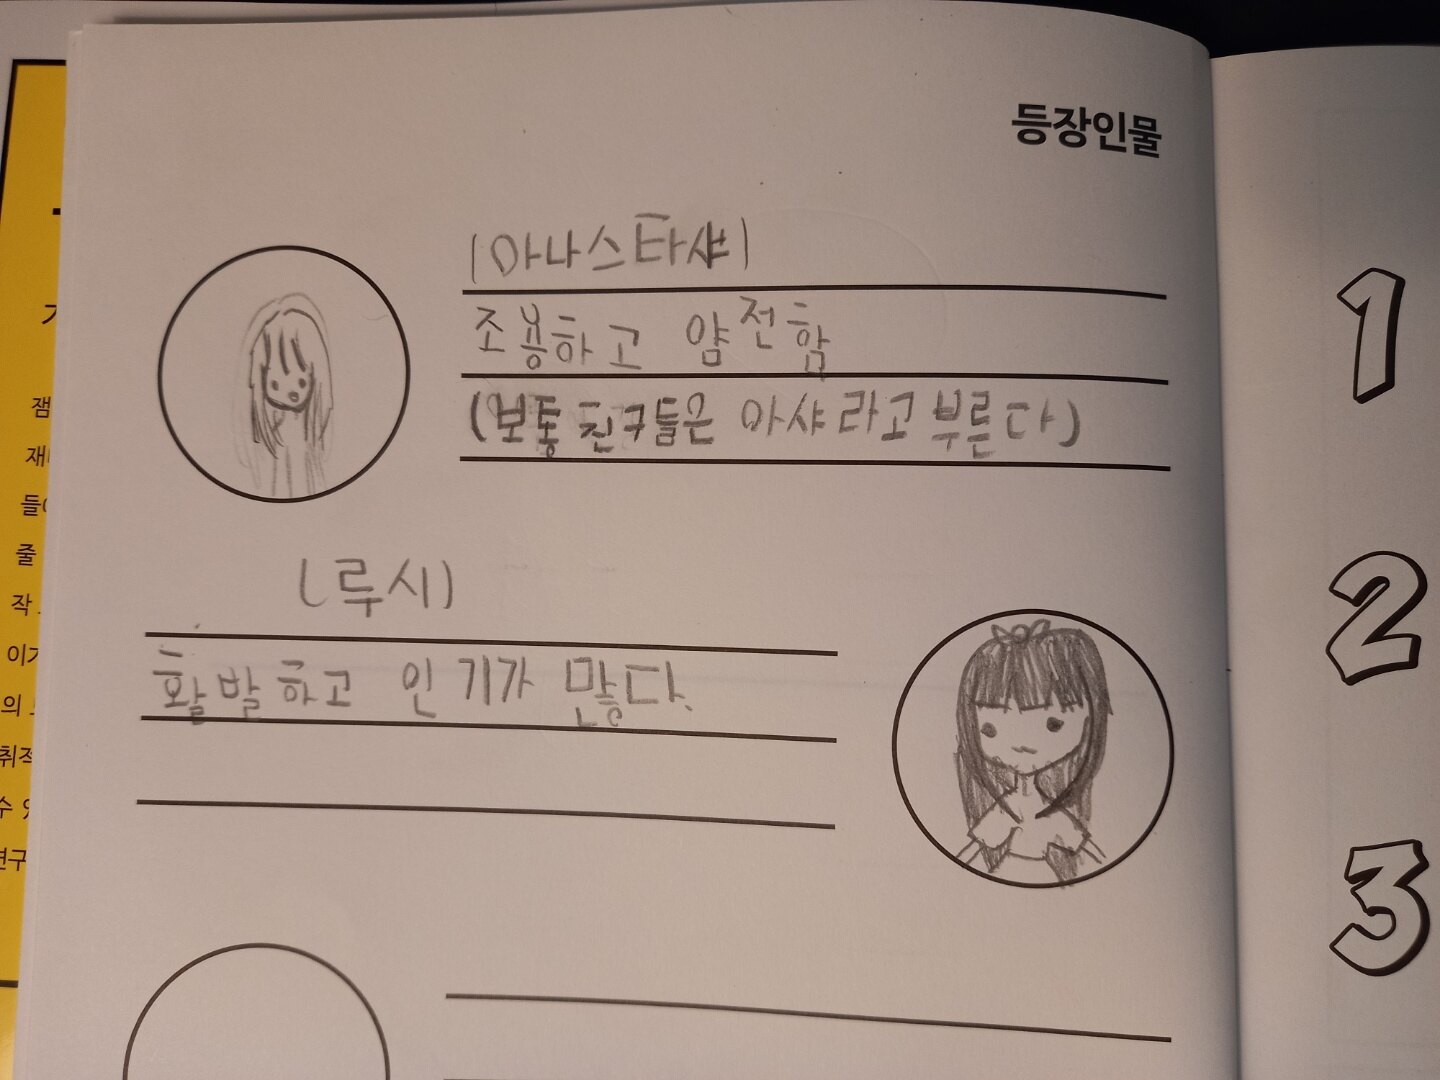 등장인물
(아나스타샤)
조용하고 얌전함
(보통 친구들은 아샤라고 부른다)
(루시)
활발하고 인기가 많다.
1
2
3
잼
들
줄
작
이
의
취적
수
연구